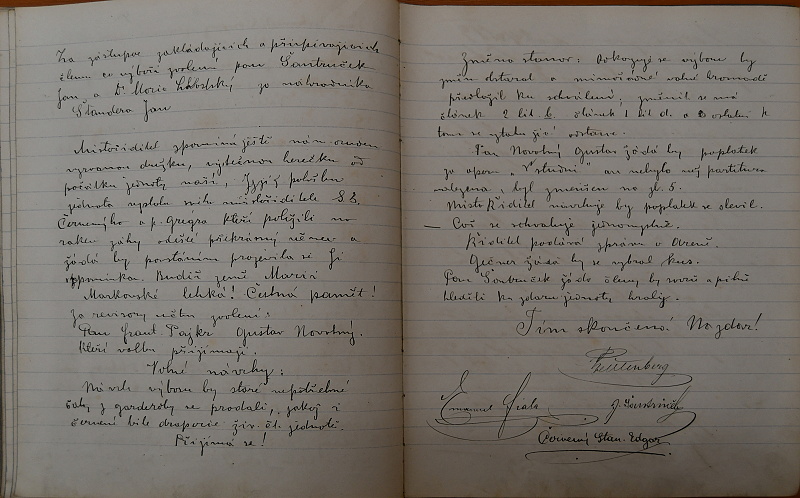 Za zástupce zakládajících a přispívajících
členů co výboři zvoleni pan Šantrůček
Jan a Dr. Moric Lhotský, za náhradníka
Standera Jan
Místořiditel vzpomíná ještě nám
družku, výtečnou herečku od
počátku jednoty naší, Její pohřbu
jednota místořiditele S. E.
Černenýho a p. Gregra kteří položili na
rakev záhy odešlé překrásný věnec a
žádá by povstáním projevila se jí
vzpomínka. Budiž zemí Marii
Markovské lehká! Čestná paměť!
Za revisory účtu zvoleni:
Pan Frant. Pajkr Gustav Novotný.
Kteří volbu přijímají.
Volné návrhy:
Návrh výboru by staré nepotřebné
šaty z garderoby se prodali, jakož i
červené bílé draperie živ. čl. jednotě.
Přijímá se!
Změna stanov: Poukazuje se výboru by
změn obstaral a mimořádné valné hromadě
předložil ku schválení; změnit se má
článek 2 lit b. článek 1 lit d. a ostatní k
tomu se vztahující
Pan Novotný Gustav žádá by poplatek
za operu „V studni“ an nebyla partitura
nalezena, byl zmenšen na zl. 5.
Místořiditel navrhuje by poplatek se slevil.
— Což se schvaluje jednomyslně.
Ředitel podává zprávu o
žádá by se vybral kus.
Pan Šantrůček žádá členy by svorně a pilně
hleděli ku zdaru jednoty hráli.
Tím skončeno! Na zdar!
Emanuel
Černený Stan. Edgar